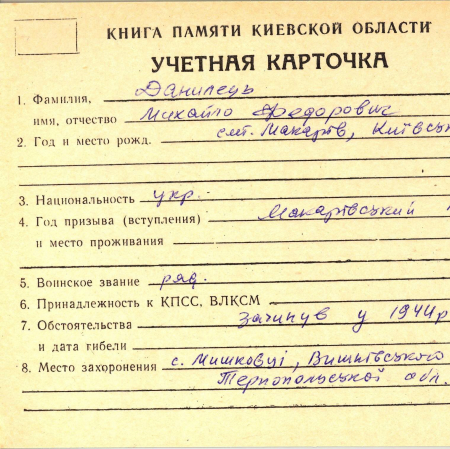 КНИГА ПАМЯТИ КИЕВСКОЙ ОБЛАСТИ
УЧЕТНАЯ КАРТОЧКА
1. Фамилия, Данилець
имя, отчество Михайло Федорович
2. Год и место рожд. смт. Макарів, Київськ
3. Национальность укр.
4. Год призыва (вступления) Макарівський
и место проживания
5. Воинское звание ряд.
6. Принадлежность к КПСС, ВЛКСМ
7. Обстоятельства Загинув у 1944р
и дата гибели
8. Место захоронения с. Мишковці, Вишнівського
Тернопольської обл.